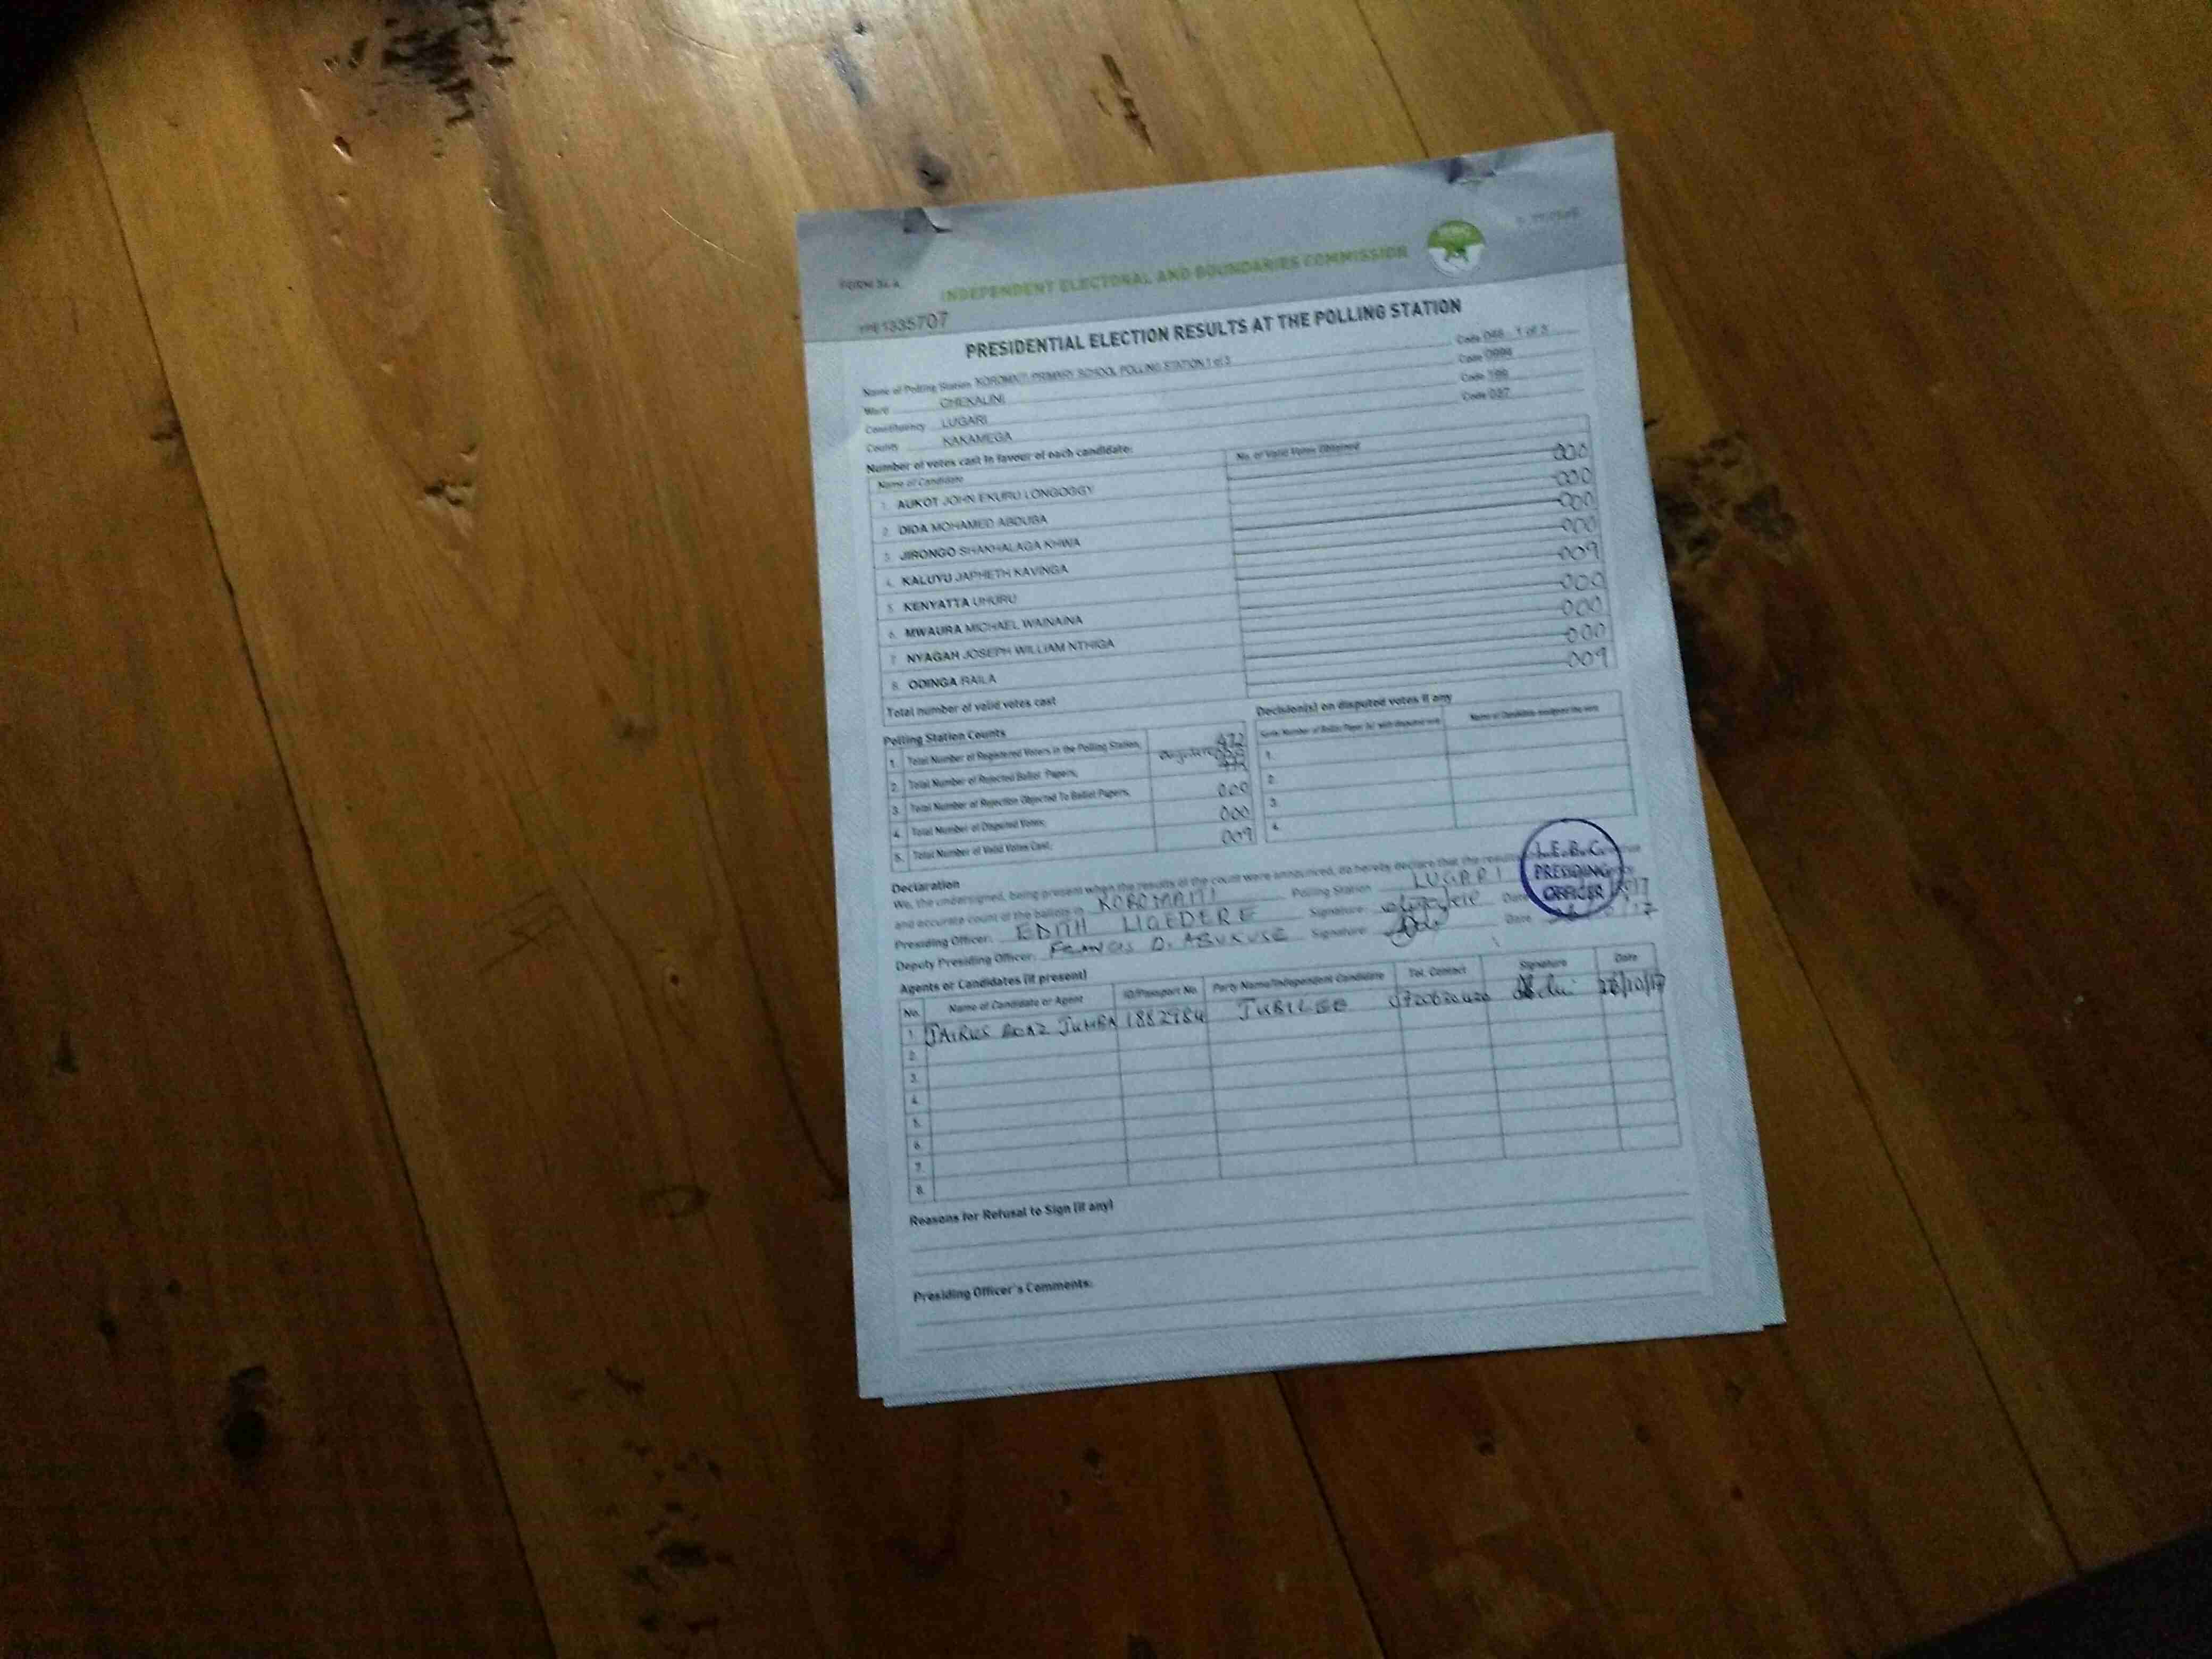 FORM 34 A
INDEPENDENT ELECTORAL AND BOUNDARIES COMMISSION
1335707
PRESIDENTIAL ELECTION RESULTS AT THE POLLING STATION
Name of Polling Station KOROMAITI PRIMARY SCHOOL POLLING STATION 1 of 3 Code 048 1 of 3
Ward CHEKALINI Code 0994
Constituency LUGARI Code 199
County KAKAMEGA Code 037
Number of votes cast in favour of each candidate:
Name of Candidate No. of Valid Votes Obtained
1. AUKOT JOHN EKURU LONGOGGY 000
2. DIDA MOHAMED ABDUBA 000
3. JIRONGO SHAKHALAGA KHWA 000
4. KALUYU JAPHETH KAVINGA 000
5. KENYATTA UHURU 009
6. MWAURA MICHAEL WAINAINA 000
7. NYAGAH JOSEPH WILLIAM NTHIGA 000
8. ODINGA RAILA 000
Total number of valid votes cast 009
Polling Station Counts
1. Total Number of Registered Voters in the Polling Station; 472
2. Total Number of Rejected Ballot Papers;
3. Total Number of Rejection Objected To Ballot Papers; 000
4. Total Number of Disputed Votes; 000
5. Total Number of Valid Votes Cast; 009
Decision(s) on disputed votes if any
Serial Number of Ballot Paper (s) with disputed vote Name of Candidate assigned the vote
1.
2.
3.
4.
Declaration
We, the undersigned, being present when the results of the count were announced, do hereby declare that the results
and accurate count of the ballots in KOROMAITI Polling Station LUGARI
Presiding Officer: EDITH LIGEDERE Signature: Date
Deputy Presiding Officer: FRANCIS O. ABUKUSE Signature: Date
I.E.B.C.
PRESIDING
OFFICER
Agents or Candidates (if present)
No. Name of Candidate or Agent ID/Passport No. Party Name/Independent Candidate Tel. Contact Signature Date
1. JAIRUS JUMBA 1882984 JUBILEE 0720620420 26/10/17
2.
3.
4.
5.
6.
7.
8.
Reasons for Refusal to Sign (if any)
Presiding Officer's Comments: